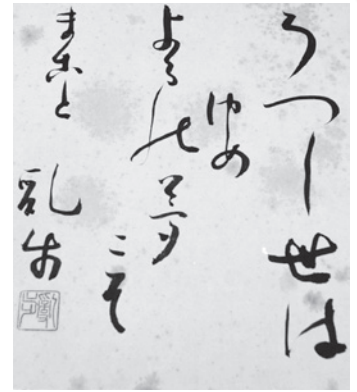 うつし世は
ゆめ
よるの夢
こそ
まこと
亂歩